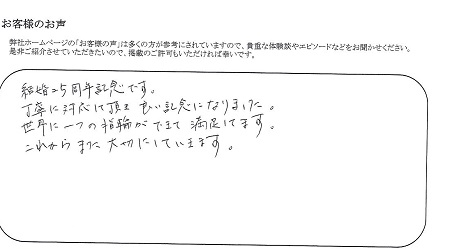 お客様のお声
弊社ホームページの「お客様の声」は多くの方が参考にされていますので、貴重な体験談やエピソードなどをお聞かせください。
是非ご紹介させていただきたいので、掲載のご許可もいただければ幸いです。
結婚25周年記念です。
丁寧に対応して頂き良い記念になりました。
世界に一つの指輪ができて満足してます。
これからまた大切にしていきます。